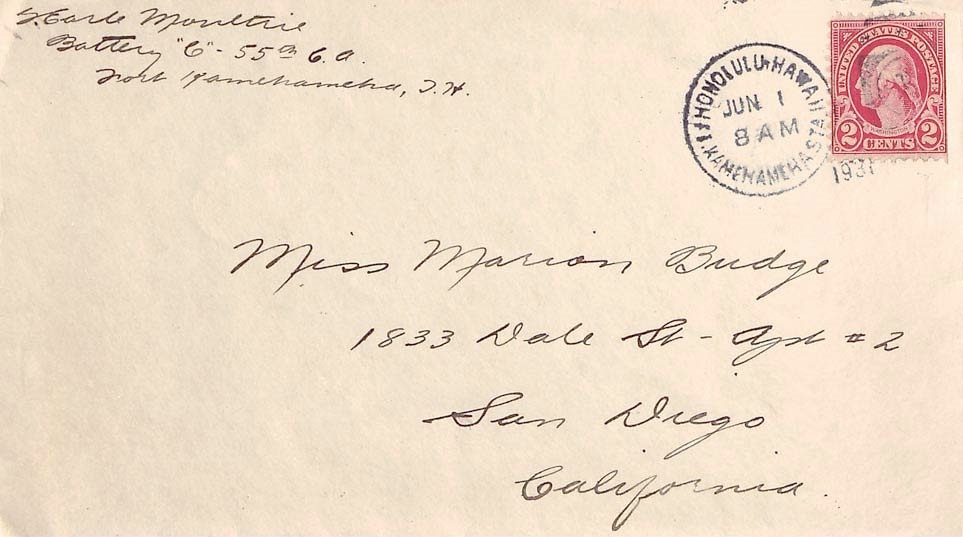 S. Earle Moultrie
Battery "C" - 55th C.A.
Fort Kamehameha, T.H.
HONOLULU, HAWAII
JUN 1
8 AM
FT. KAMEHAMEHA STA.
1931
UNITED STATES POSTAGE
WASHINGTON
2 CENTS 2
Miss Marion Budge
1833 Dale St - Apt # 2
San Diego
California.